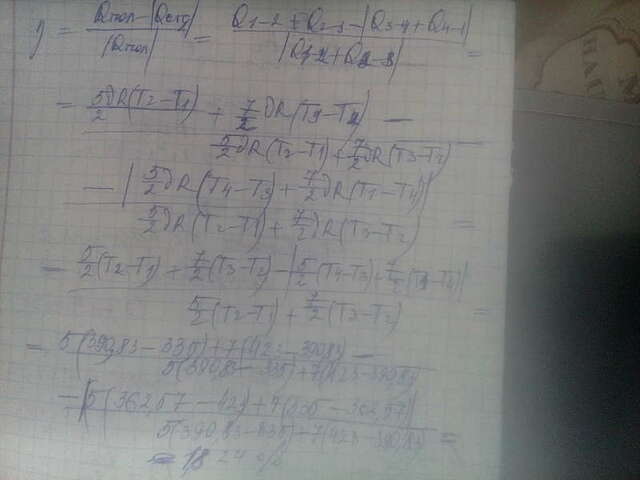 η = Qпол-|Qотд| / |Qпол| = Q1-2 + Q2-3 - |Q3-4 + Q4-1| / |Q1-2 + Q2-3| =
= 5/2 νR(T2-T1) + 7/2 νR(T3-T2) - / 5/2 νR(T2-T1) + 7/2 νR(T3-T2)
- |5/2 νR(T4-T3) + 7/2 νR(T1-T4)| / 5/2 νR(T2-T1) + 7/2 νR(T3-T2) =
= 5/2 (T2-T1) + 7/2 (T3-T2) - |5/2 (T4-T3) + 7/2 (T1-T4)| / 5/2 (T2-T1) + 7/2 (T3-T2) =
= 5(390,83-335) + 7(423-390,83) - / 5(390,83-335) + 7(423-390,83)
- |5(362,57-423) + 7(335-362,57)| / 5(390,83-335) + 7(423-390,83) =